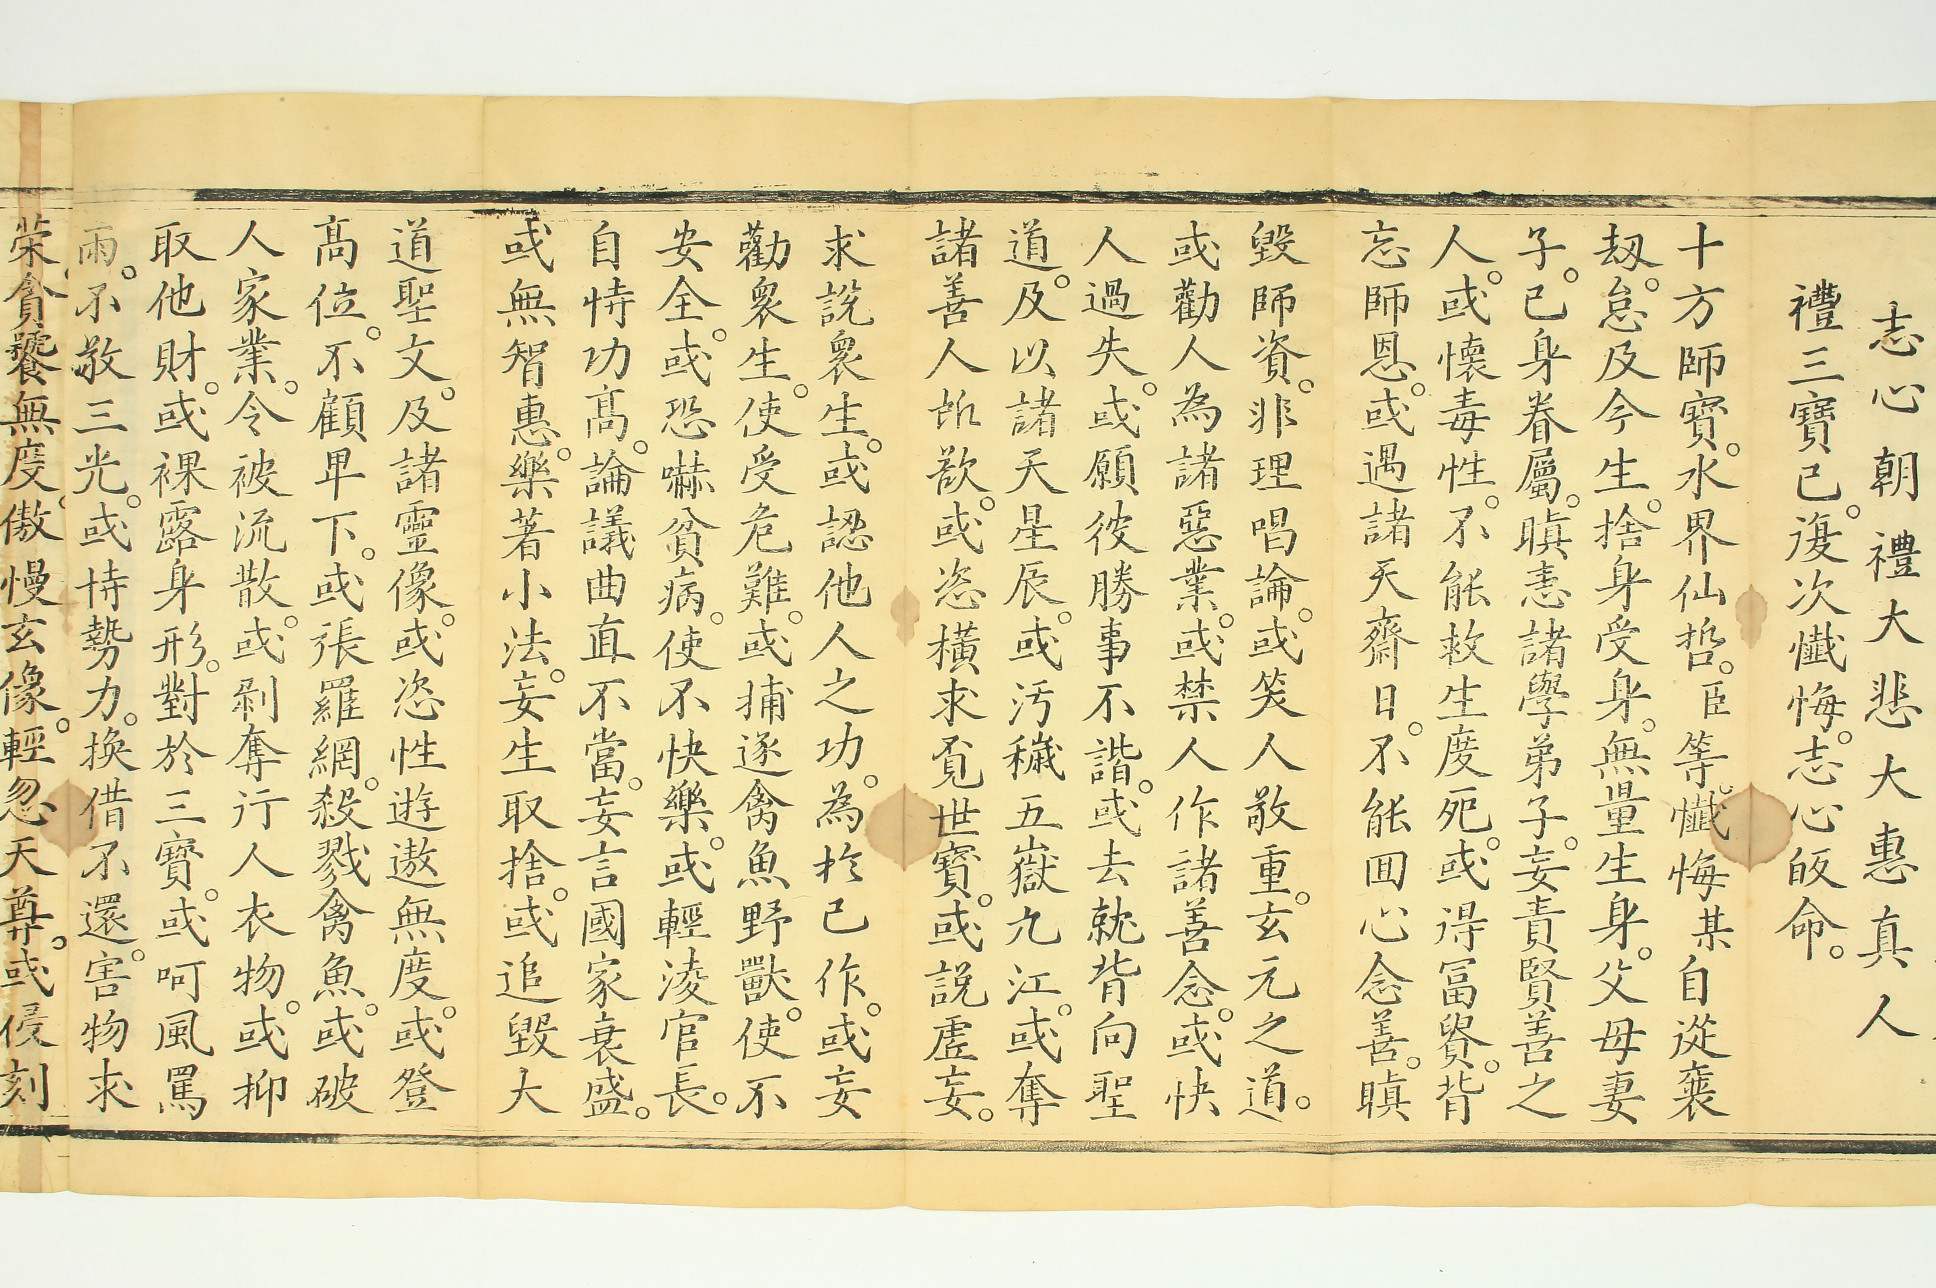 志心朝禮大悲大惠真人
禮三寶已。復次懺悔。志心皈命。
十方師寶。水界仙哲。臣等。懺悔某自從曩
劫。怠及今生。捨身受身。無量生身。父母妻
子。已身眷屬。瞋恚諸學弟子。妄責賢善之
人。或懷毒性。不能救生度死。或得冨貴。背
忘師恩。或遇諸天齋日。不能囬心念善。瞋
毀師資。非理唱論。或笑人敬重。玄元之道。
或勸人為諸惡業。或禁人作諸善念。或快
人過失。或願彼勝事不諧。或去就背向聖
道。及以諸天星辰。或汚穢五嶽九江。或奪
諸善人所歡。或恣橫求覓世寶。或説虛妄。
求說衆生。或認他人之功。為於已作。或妄
勸衆生。使受危難。或捕逐禽魚野獸。使不
安全。或恐嚇貧病。使不快樂。或輕淩官長。
自恃功高。論議曲直不當。妄言國家衰盛。
或無智惠。樂著小法。妄生取捨。或追毀大
道聖文。及諸靈像。或恣性遊遨無度。或登
高位。不顧卑下。或張羅網。殺戮禽魚。或破
人家業。令被流散。或剥奪行人衣物。或抑
取他財。或裸露身形。對於三寶。或呵風罵
雨。不敬三光。或恃勢力。換借不還。害物求
荣。貪饕無度。傲慢玄像。輕忽天尊。或侵刻